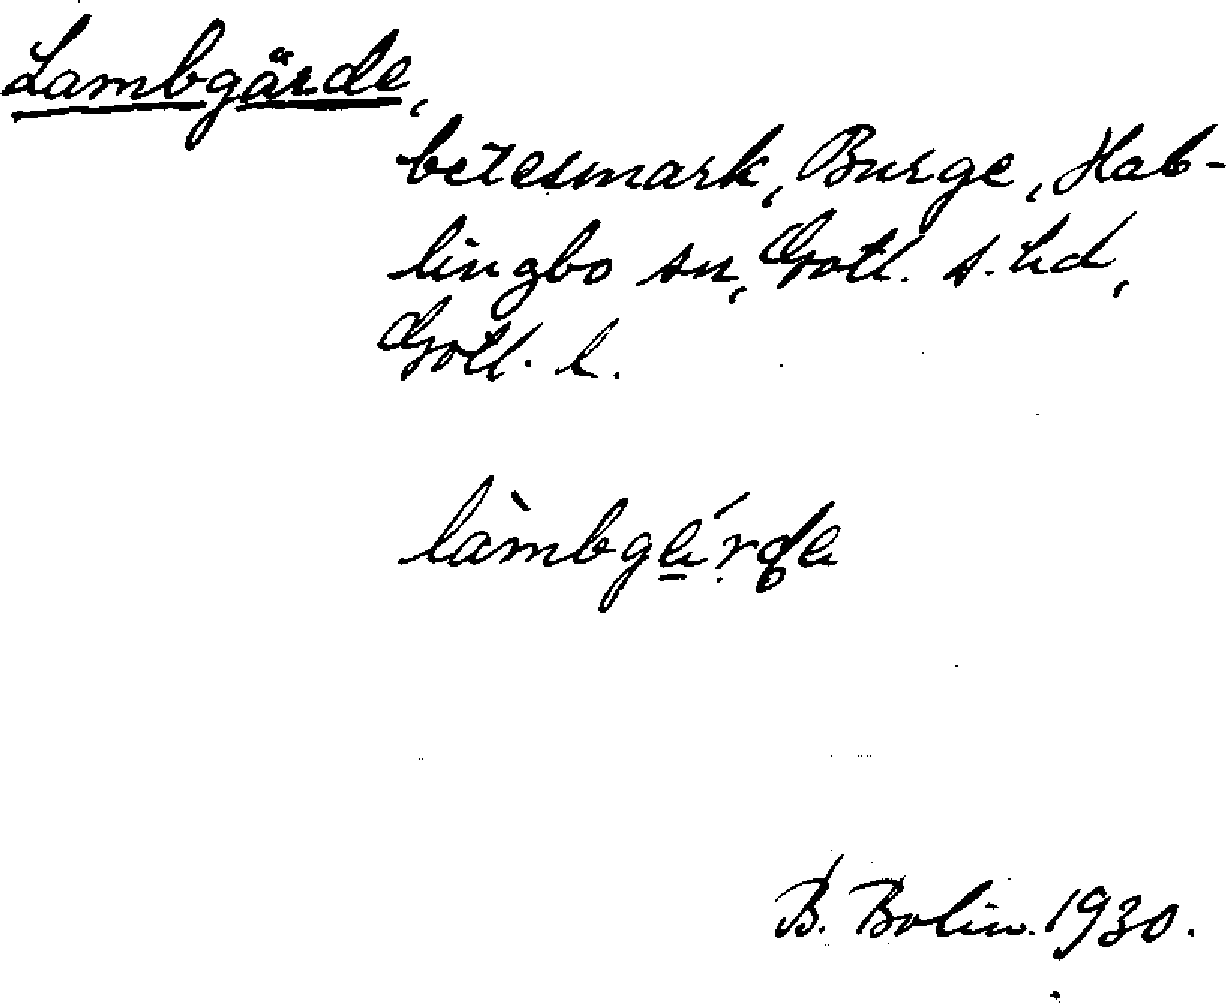 Lambgärde,
betesmark, Burge, Hab-
lingbo sn, Gotl. s. hd,
Gotl. l.
B. Bolin. 1930.